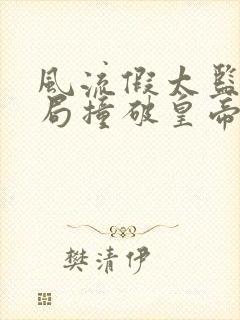 風流假太監
局撞破皇帝
樊清伊